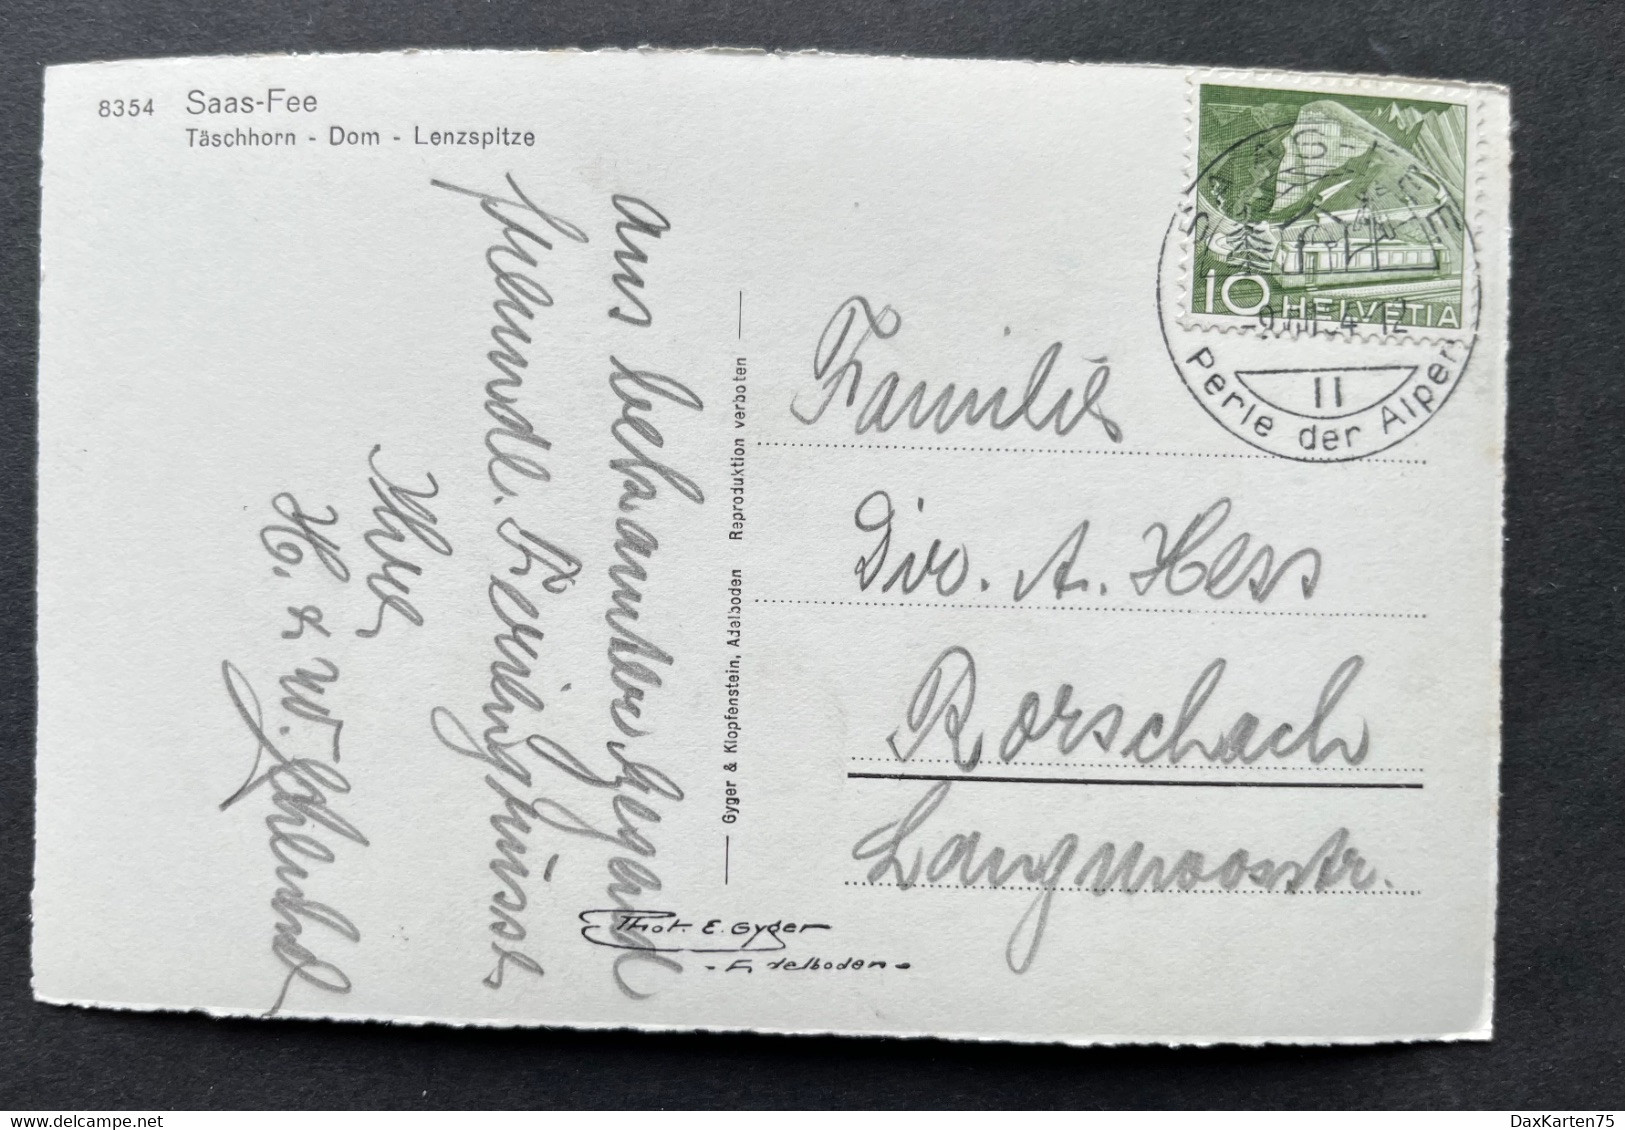 8354 Saas-Fee
Täschhorn - Dom - Lenzspitze
aus bekannter Gegend
freundl. Feriengrüsse
Ihre
H. & W.
Gyger & Klopfenstein, Adelboden Reproduktion verboten
Phot. E. Gyger
- Adelboden -
10 HELVETIA
SAAS-FEE
Perle der Alpen
II
Familie
Dir. A. Hess
Rorschach
Langmoosstr.
DaxKarten75